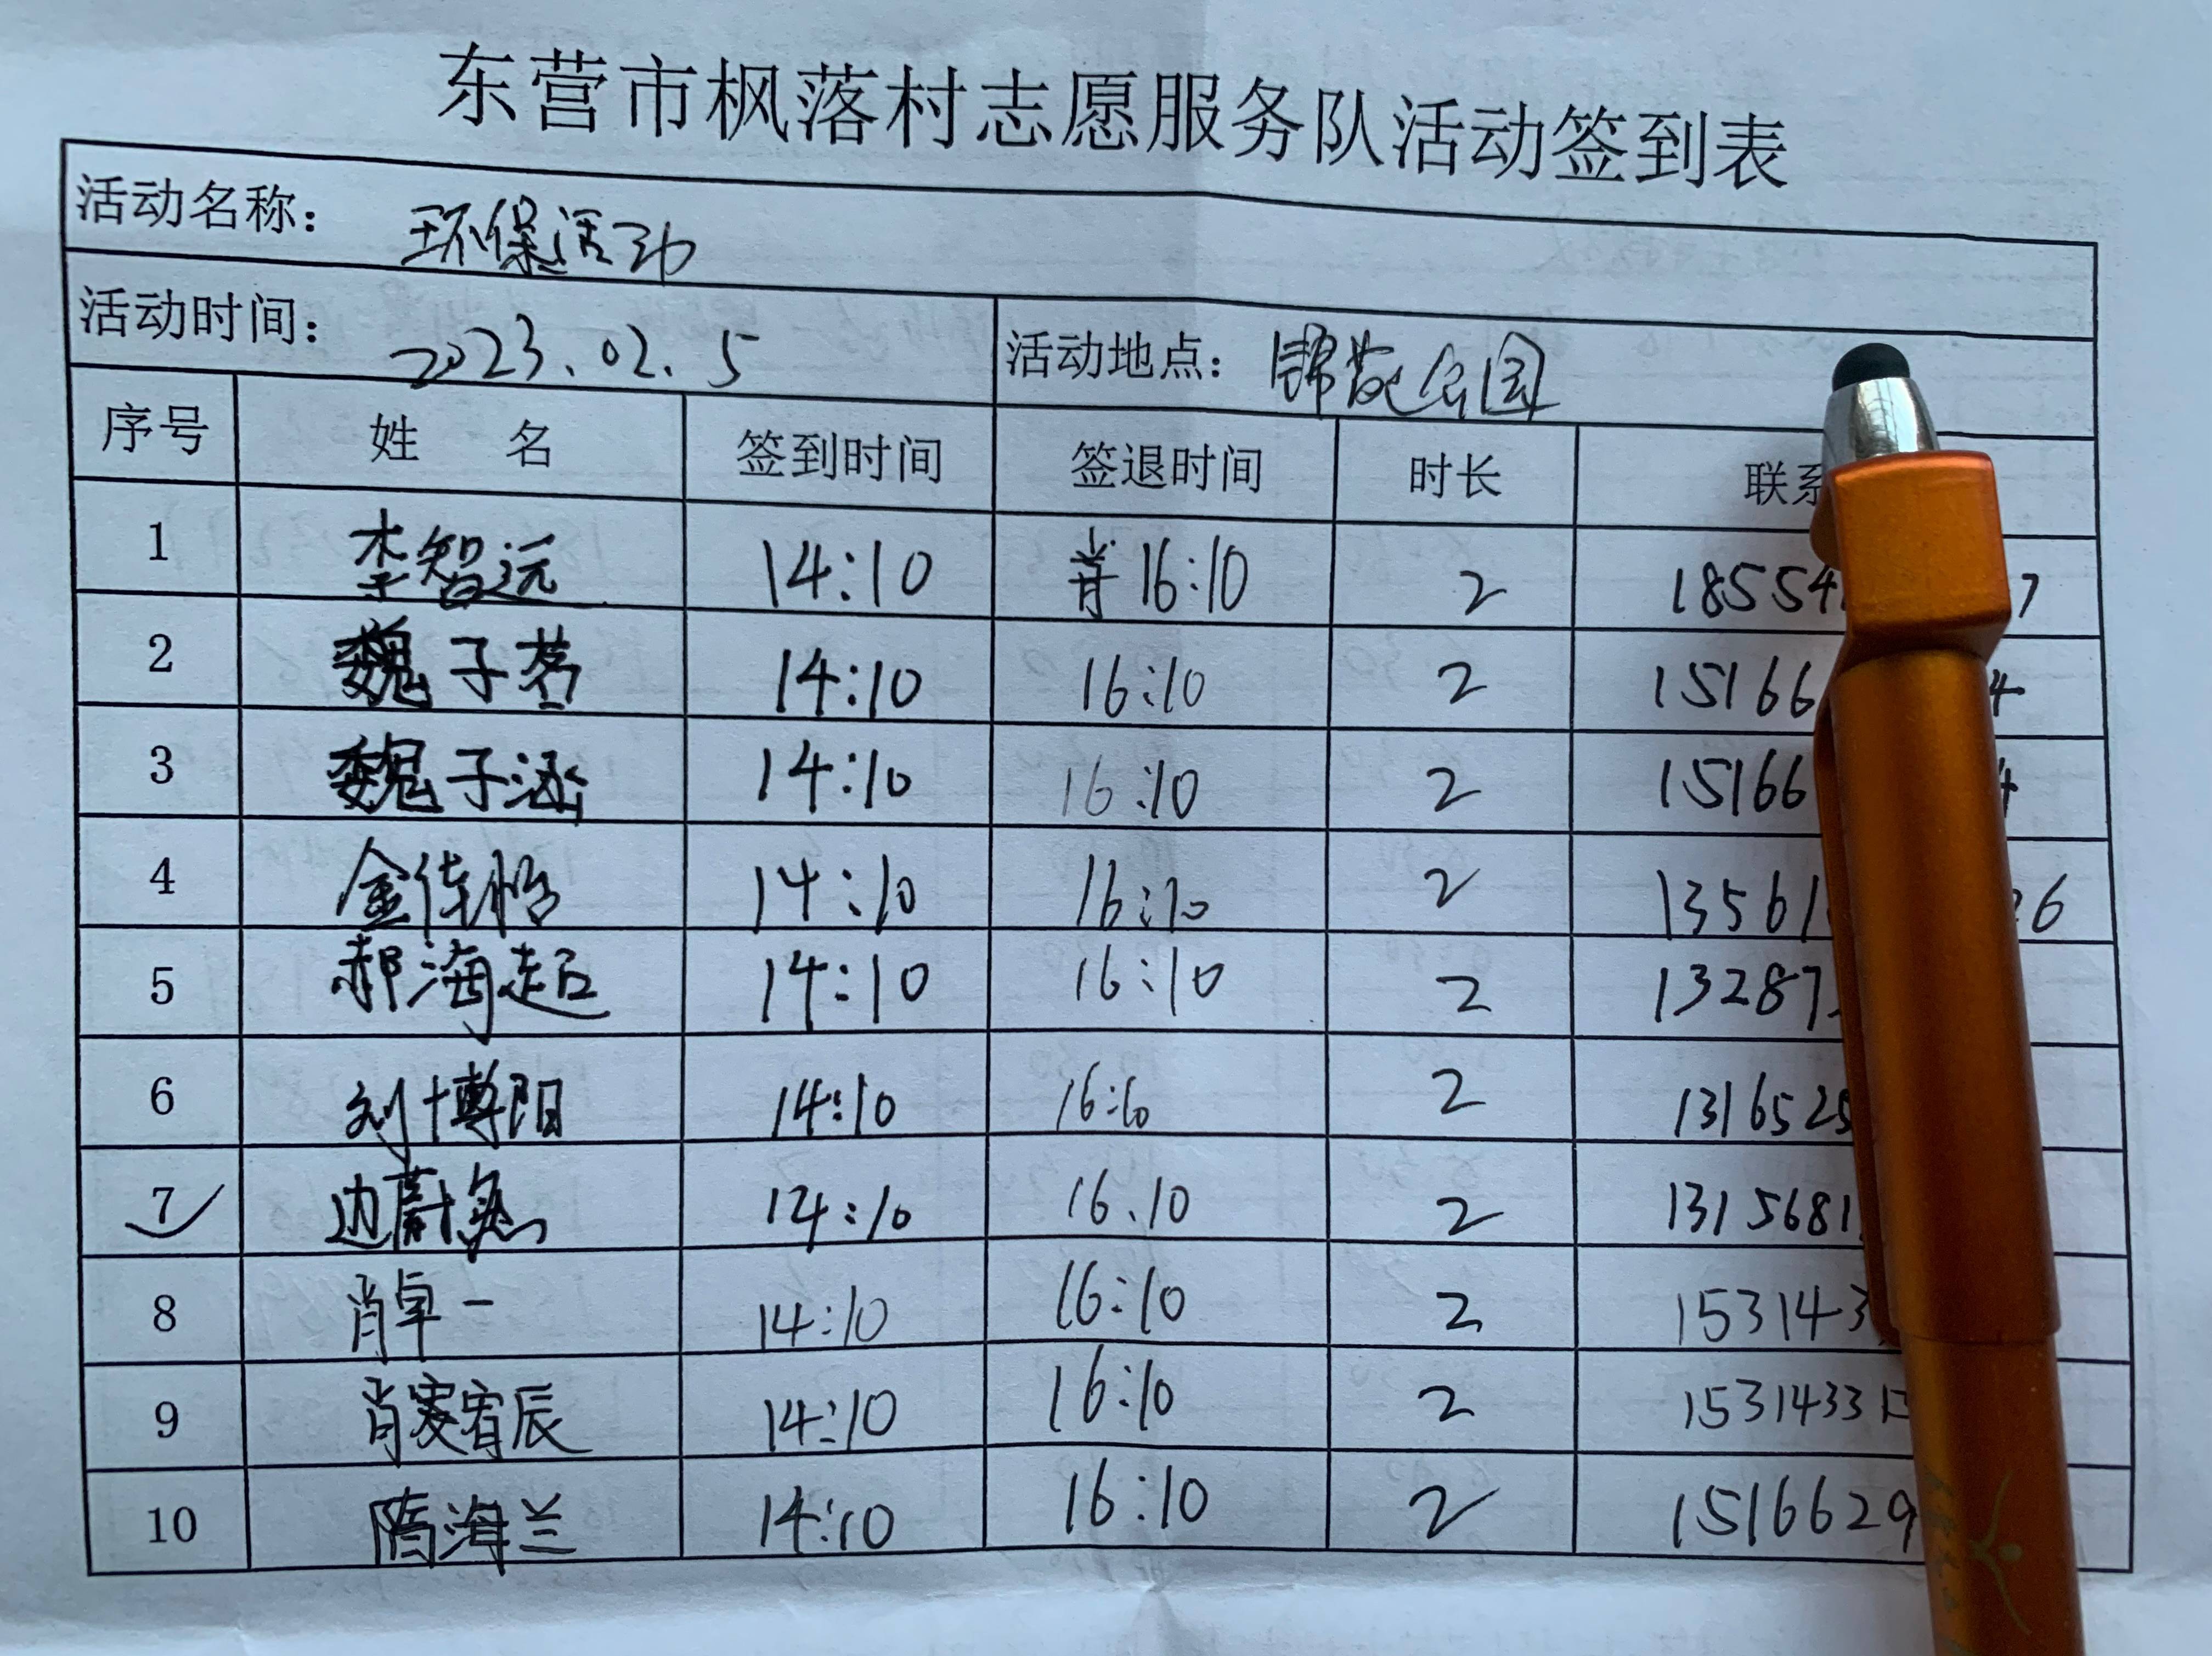 东营市枫落村志愿服务队活动签到表
活动名称： 环保活动
活动时间： 2023.02.5 活动地点： 锦苑公园
序号 姓 名 签到时间 签退时间 时长 联系
1 李智远 14:10 16:10 2 18554 7
2 魏子茗 14:10 16:10 2 15166 4
3 魏子涵 14:10 16:10 2 15166 4
4 金佳怡 14:10 16:10 2 13561 26
5 郝海超 14:10 16:10 2 13287
6 刘博阳 14:10 16:10 2 1316525
7 边蔚 14:10 16.10 2 1315681
8 肖卓一 14:10 16:10 2 1531433
9 肖宥辰 14:10 16:10 2 15314331
10 隋海兰 14:10 16:10 2 1516629